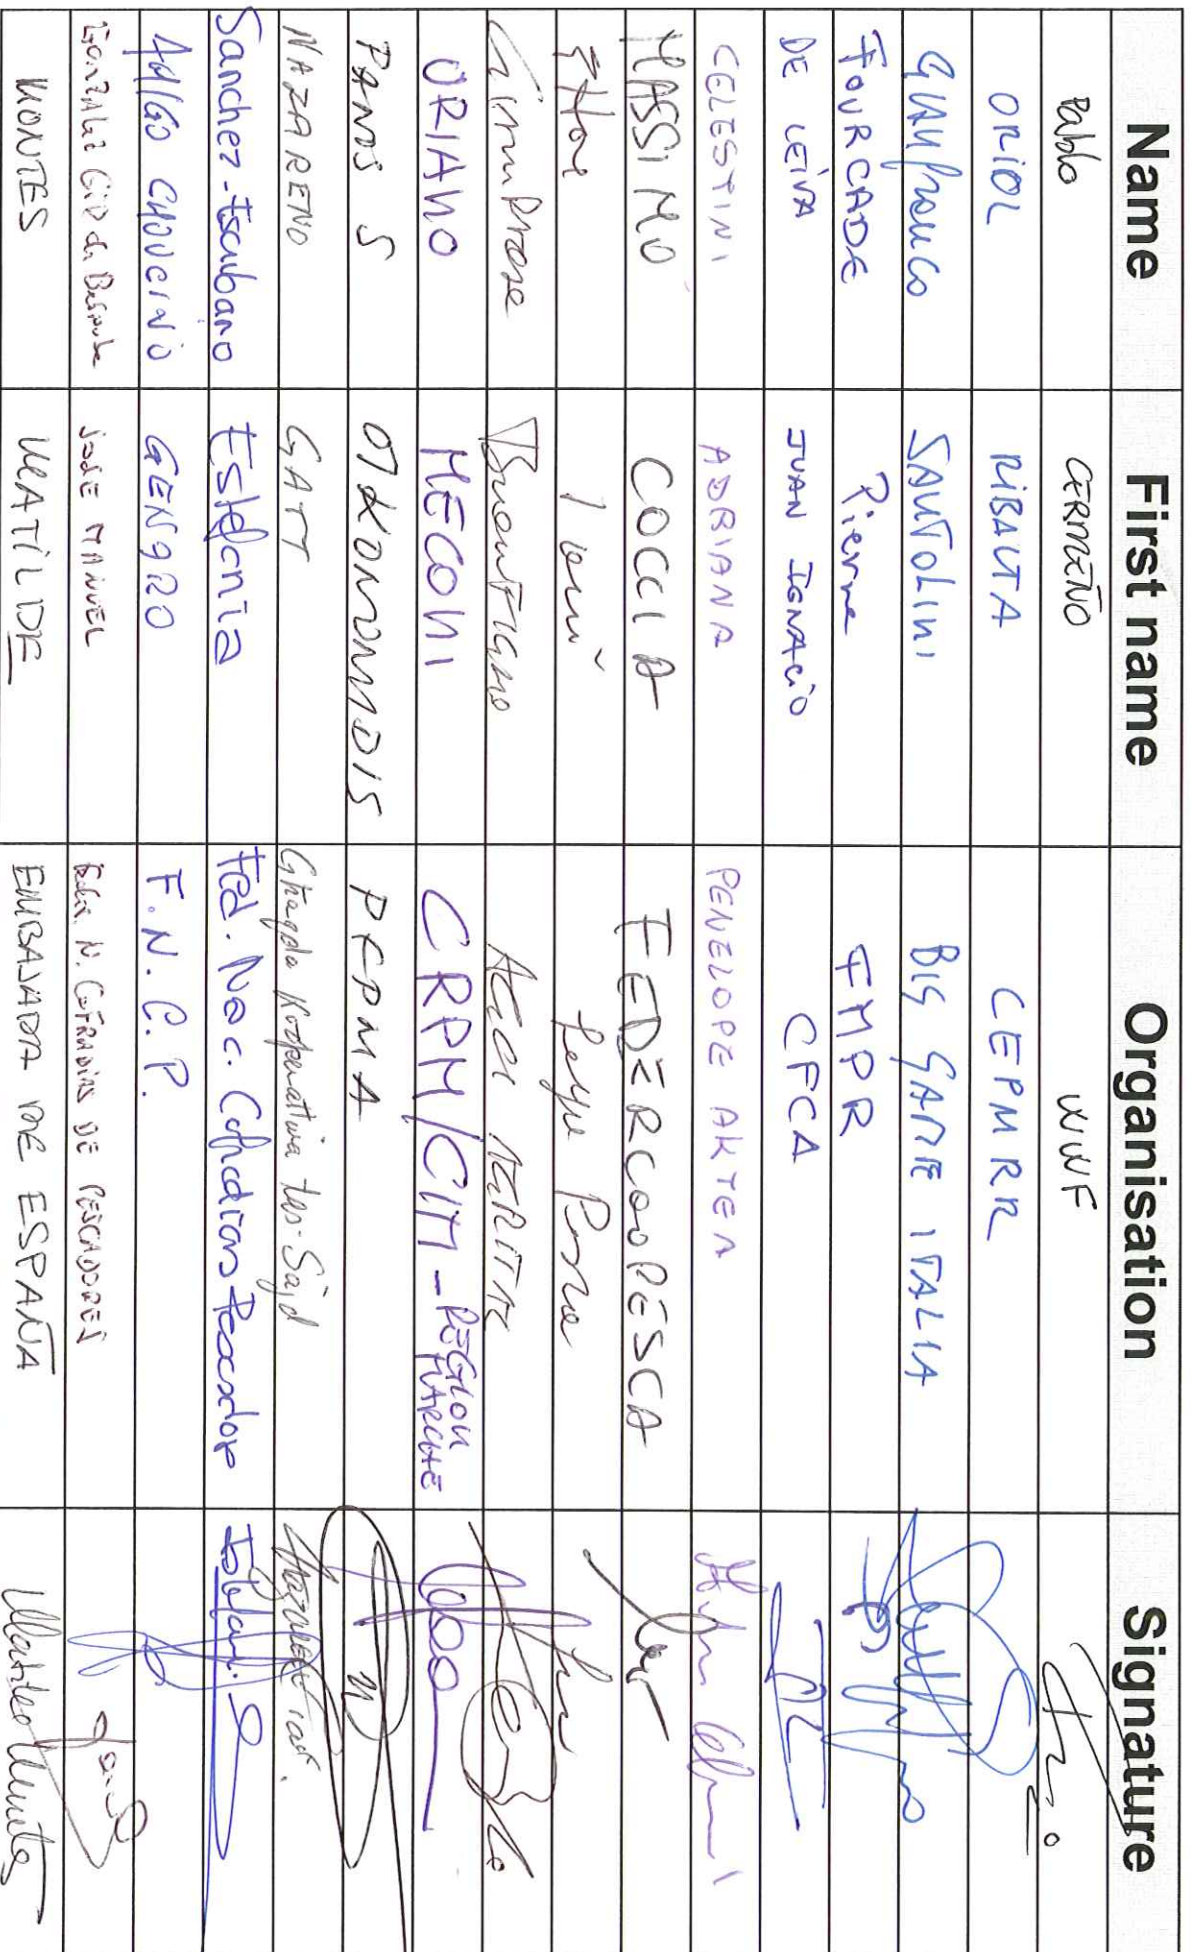 Name First name Organisation Signature
Pablo CERMEÑO WWF
ORIOL RIBALTA CEPMRR
Gianfranco SANTOLINI BIG GAME ITALIA
FOURCADE Pierre FMPR
DE LEIVA JUAN IGNACIO CFCA
CELESTINI ADRIANA PENELOPE AKTEA
MASSIMO COCCIA FEDERCOOPESCA
Ettore Ianì Lega Pesca
Buonfiglio AGCI
ORIANO MECONI CRPM/CIM - REGION MARCHE
PANOS S OIKONOMIDIS PEPMA
NAZARENO GATT Ghaqda Koperattiva tas-Sajd
Sanchez-Escribano Estefania Fed. Nac. Cofradias Pescadores
AMIGO CHOUCIÑO GENARO F.N.C.P.
GONZALEZ GIL de Bernabe JOSE MANUEL N. COFRADIAS DE PESCADORES
MONTES MATILDE EMBAJADA DE ESPAÑA